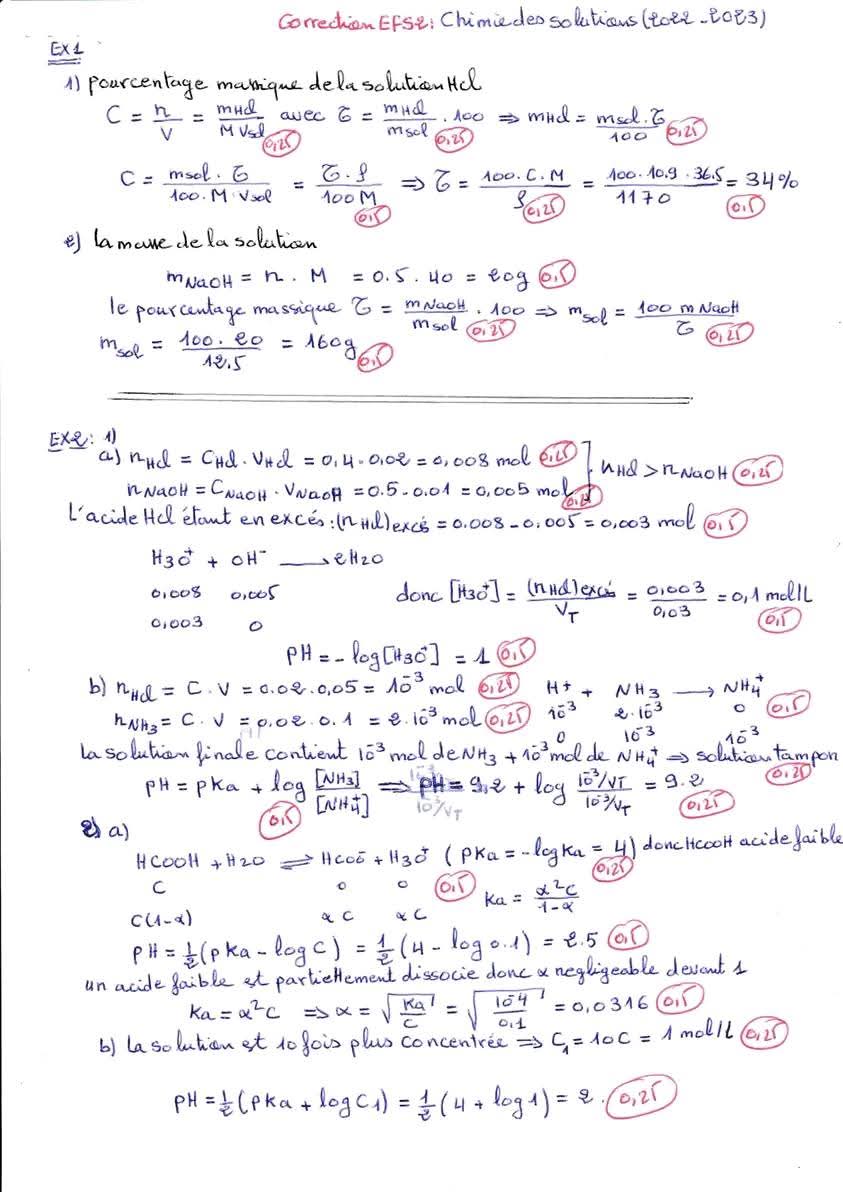 Correction EFS2: Chimie des solutions (2022-2023)
Ex 1
1) pourcentage massique de la solution Hcl
C = n/V = mHcl/(M Vsol) 0,25 avec τ = mHcl/msol . 100 0,25 ⇒ mHcl = msol.τ/100 0,25
C = msol.τ/(100.M.Vsol) = τ.ρ/(100M) 0,5 ⇒ τ = 100.C.M/ρ 0,25 = 100.10,9.36,5/1170 = 34% 0,5
2) la masse de la solution
mNaOH = n . M = 0.5 . 40 = 20g 0,5
le pourcentage massique τ = mNaOH/msol . 100 0,25 ⇒ msol = 100 mNaOH/τ 0,25
msol = 100.20/12.5 = 160g 0,5
EX2: 1)
a) nHcl = CHcl . VHcl = 0,4.0,02 = 0,008 mol 0,25 ] nHcl > nNaOH 0,25
nNaOH = CNaOH . VNaOH = 0.5-0.01 = 0,005 mol 0,25
L'acide Hcl étant en excés: (nHcl)excés = 0.008-0,005 = 0,003 mol 0,5
H3O⁺ + OH⁻ ⟶ 2H2O
0,008 0,005 donc [H3O⁺] = (nHcl)excés/VT = 0,003/0,03 = 0,1 mol/L 0,5
0,003 0
PH = -log[H3O⁺] = 1 0,5
b) nHcl = C.V = 0.02.0,05 = 10⁻³ mol 0,25 H+ + NH3 ⟶ NH4⁺
nNH3 = C.V = 0,02.0.1 = 2.10⁻³ mol 0,25 10⁻³ 2.10⁻³ 0 0,5
0 10⁻³ 10⁻³
la solution finale contient 10⁻³ mol de NH3 + 10⁻³ mol de NH4⁺ ⇒ solution tampon 0,25
PH = PKa + log [NH3]/[NH4⁺] 0,5 ⇒ PH = 9,2 + log (10⁻³/VT)/(10⁻³/VT) = 9.2 0,25
2) a)
HCOOH + H2O ⇌ Hcoo⁻ + H3O⁺ (PKa = -logKa = 4) donc HcooH acide faible 0,25
C 0 0 0,5 Ka = α²C/(1-α)
C(1-α) αC αC
PH = 1/2(PKa - logC) = 1/2(4 - log0.1) = 2.5 0,5
un acide faible est partiellement dissocie donc α negligeable devant 1
Ka = α²C ⇒ α = √(Ka/C) = √(10⁻⁴/0,1) = 0,0316 0,5
b) La solution est 10 fois plus concentrée ⇒ C1 = 10C = 1 mol/L 0,25
PH = 1/2(PKa + logC1) = 1/2(4 + log1) = 2. 0,25